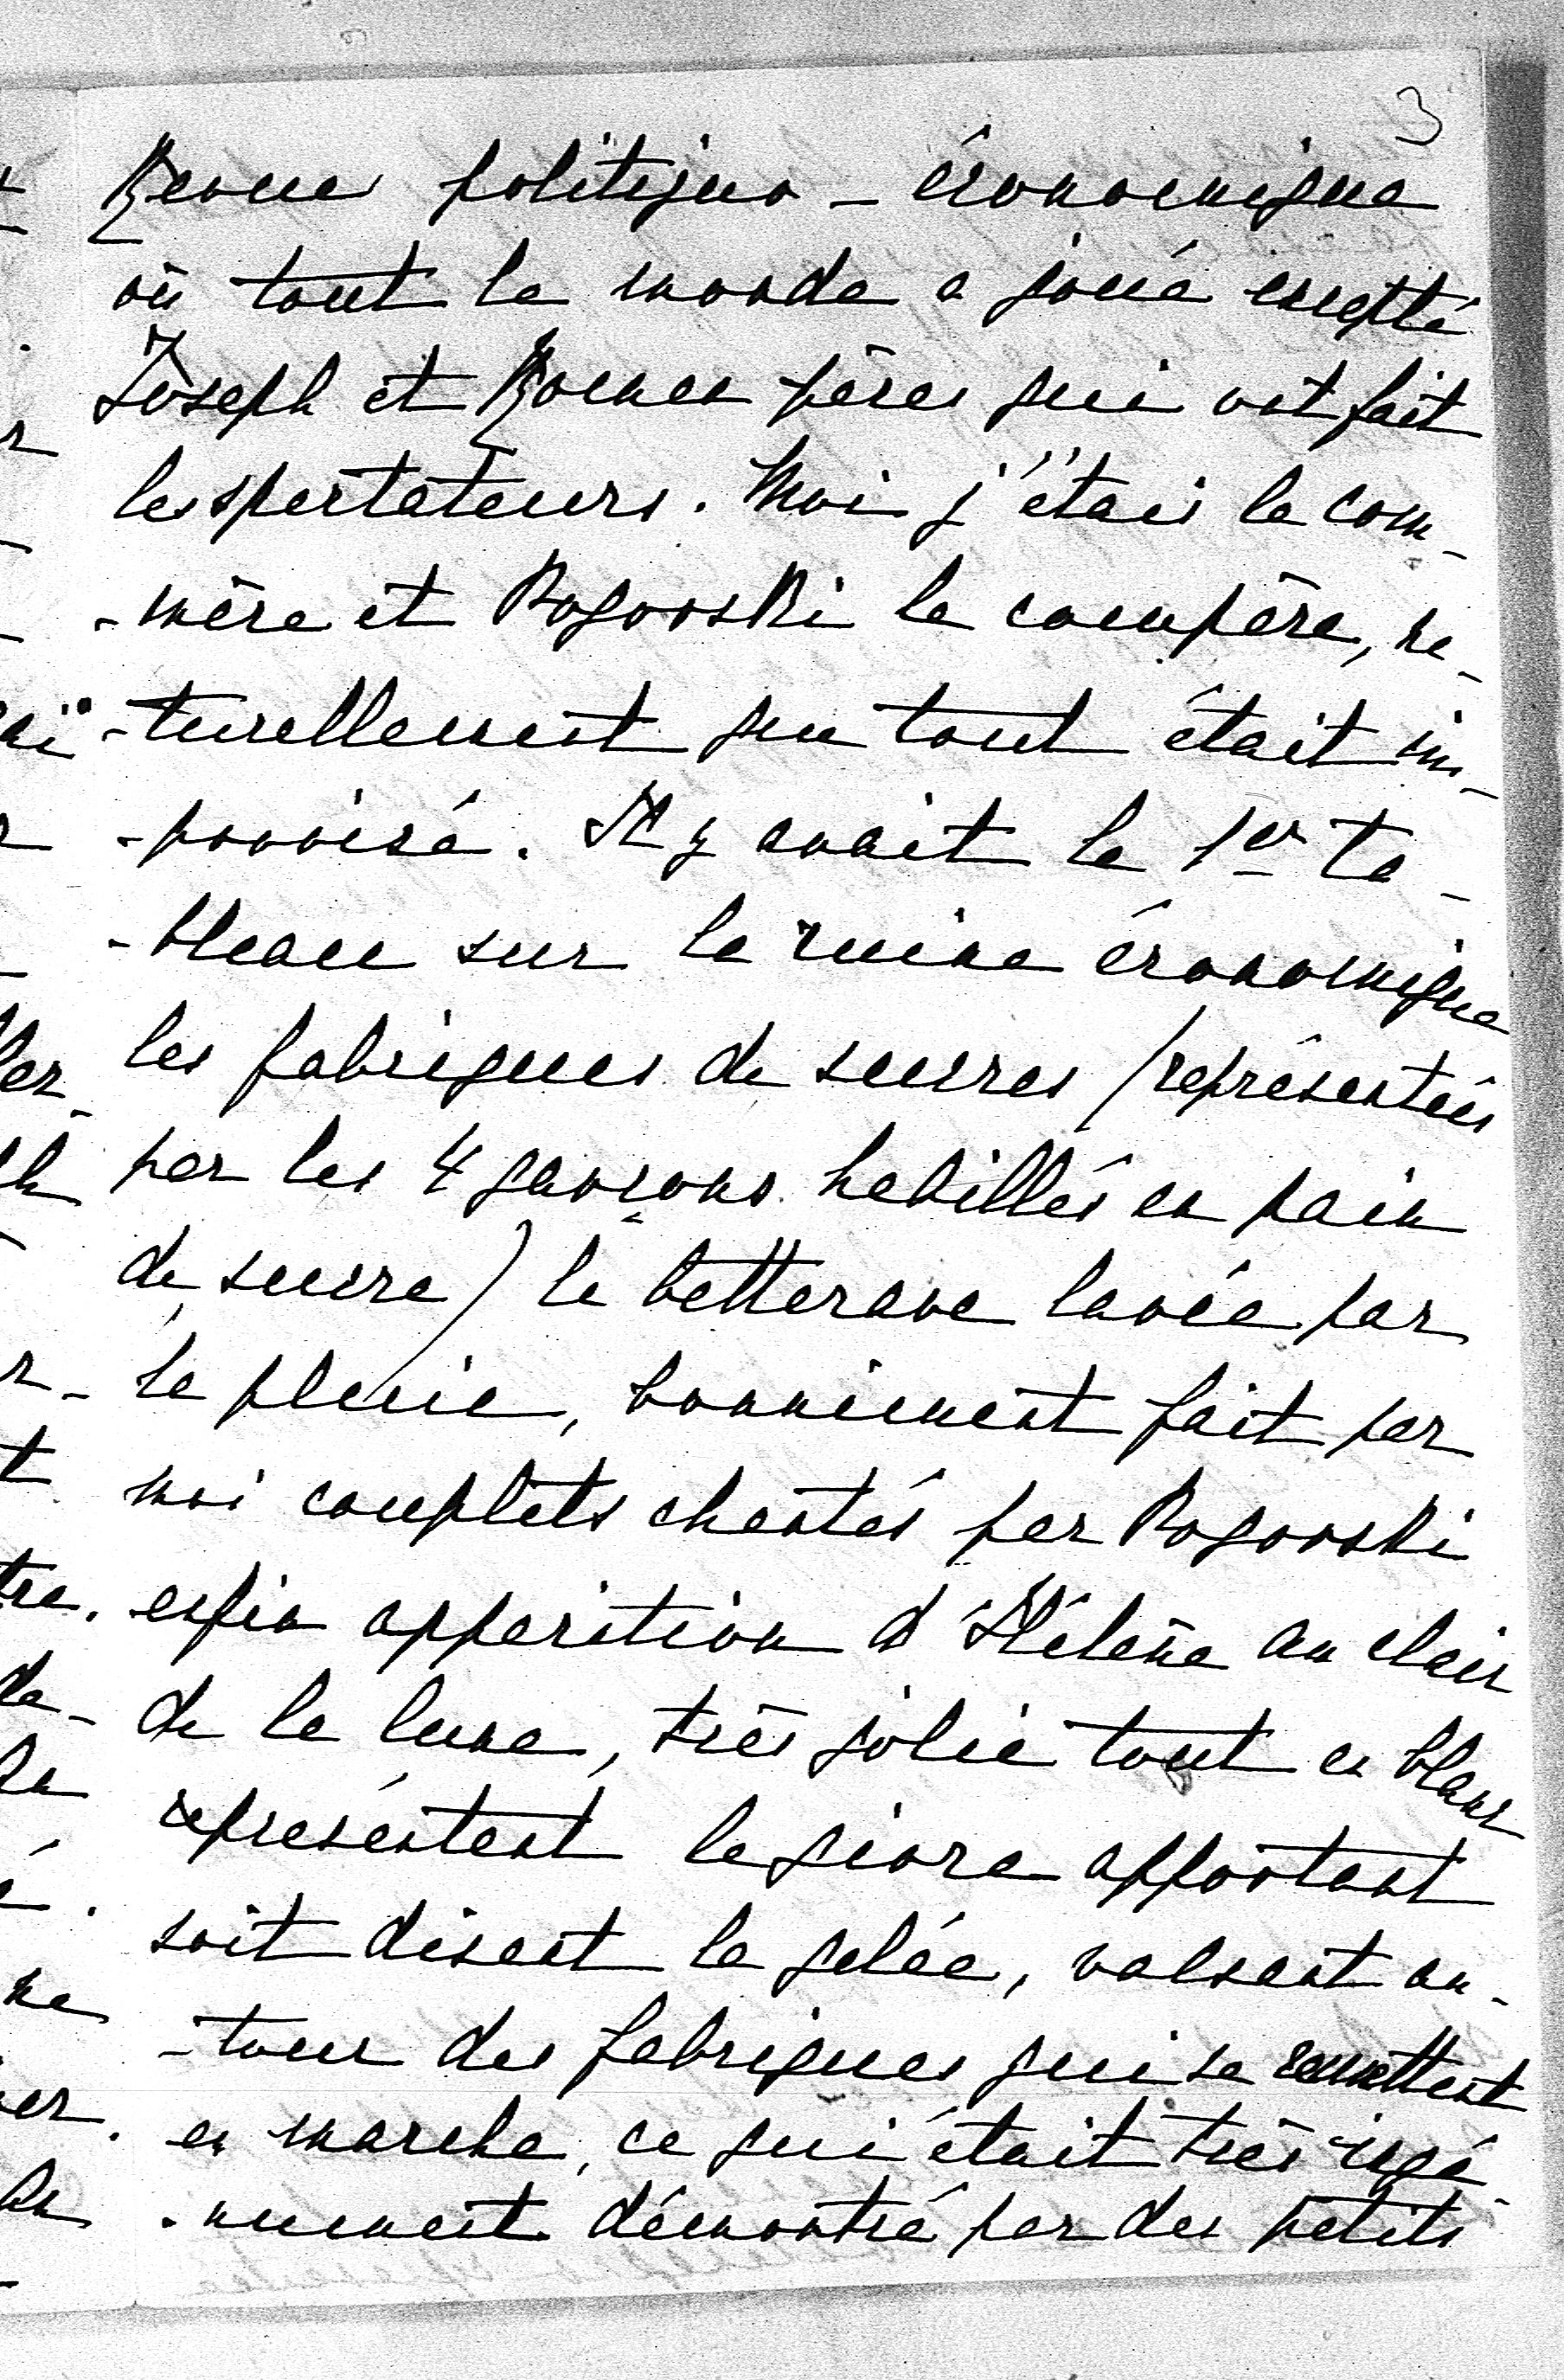 3
Revue politique - économique
où tout le monde a joué excepté
Joseph et Roman pères qui ont fait
les spectateurs. Moi j'étais la com-
-mère et Rogovski le compère, na-
-turellement que tout était im-
-provisé. Il y avait le 1er ta-
-bleau sur la ruine économique
les fabriques de sucres (représentées
par les 4 garçons habillés en pain
de sucre) la betterave lavée par
la pluie, bonniment fait par
moi couplets chantés par Rogovski
enfin apparition d'Hélène au clair
de la lune, très jolie tout en blanc
représentant le givre apportant
soit disant la gelée, valsant au-
-tour des fabriques qui se remettent
en marche, ce qui était très ingé-
-nument démontré par des petits